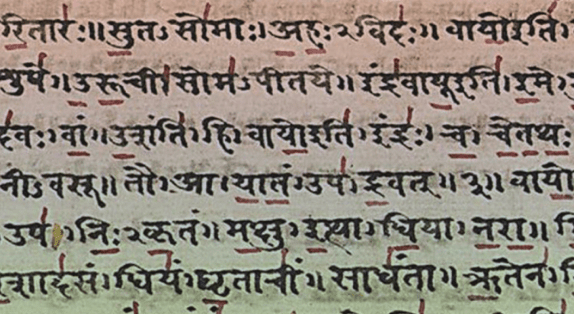 रितारः॥ सुतऽसोमाः। अहःऽविदः॥ वायो इति
शुषे॥ उरूची। सोमऽपीतये॥ इंद्रवायू इति। इमे
दवः। वां। उशंति। हि। वायो इति। इंद्रः। च। चेतथः
नीऽवसू॥ तौ। आ। यातं। उप। द्रवत्॥ वायो
उप। निःऽकृतं॥ मक्षु। इत्था। धिया। नरा॥
शादसं। धियं। घृताचीं॥ साधंता॥ ऋतेन।